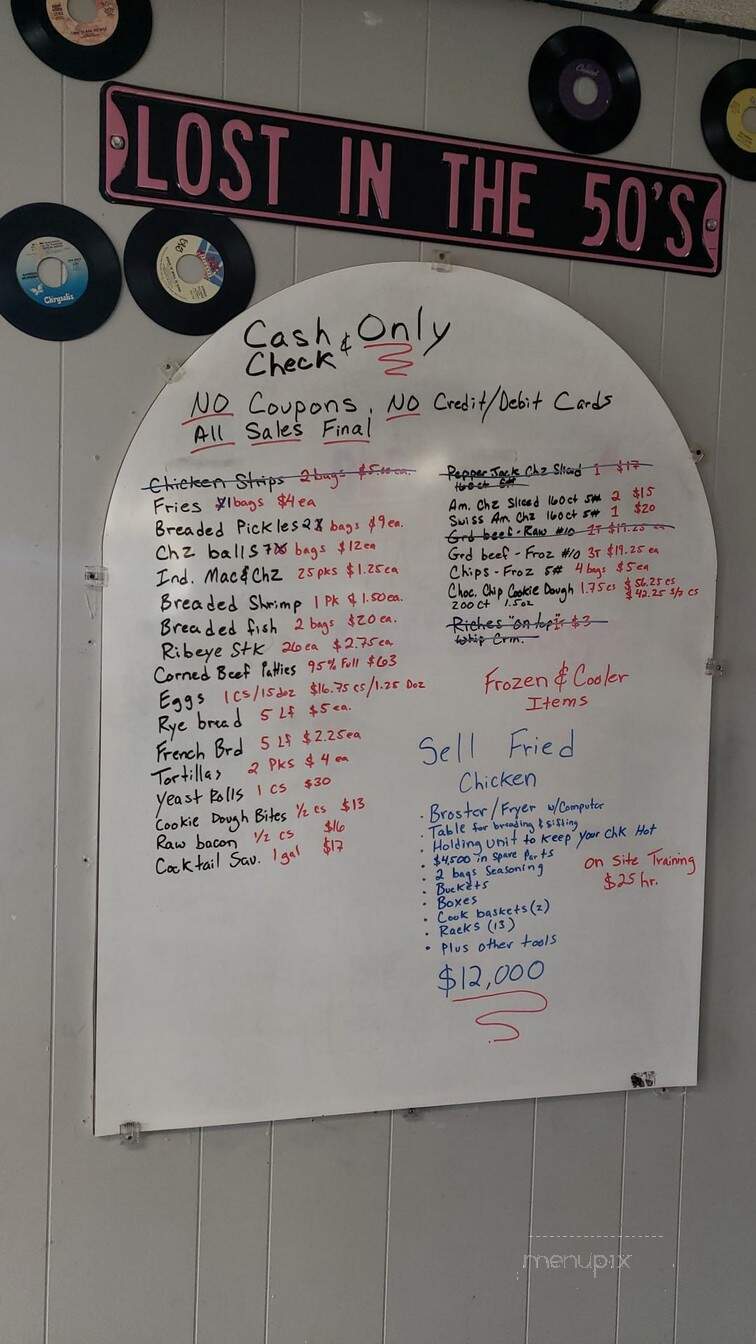 LOST IN THE 50'S
Chrysalis
Capitol
Cash & Only
Check
NO Coupons, NO Credit/Debit Cards
All Sales Final
Chicken Strips 2 bags
Fries 1 bags $4 ea
Breaded Pickles 2 bags $9 ea.
Chz balls 7 bags $12 ea
Ind. Mac & Chz 25 pks $1.25 ea.
Breaded Shrimp 1 Pk $1.50 ea.
Breaded fish 2 bags $20 ea.
Ribeye Stk 26 ea $2.75 ea
Corned Beef Patties 95% Full $63
Eggs 1 cs/15 doz $16.75 cs/1.25 Doz
Rye bread 5 Lf $5 ea.
French Brd 5 Lf $2.25 ea
Tortillas 2 Pks $4 ea
Yeast Rolls 1 cs $30
Cookie Dough Bites 1/2 cs $13
Raw bacon 1/2 cs $16
Cocktail Sau. 1 gal $17
Pepper Jack Chz Sliced 1 $17
160ct 5#
Am. Chz Sliced 160ct 5# 2 $15
Swiss Am Chz 160ct 5# 1 $20
Grd beef - Raw #10 $19.25 ea
Grd beef - Froz #10 3T $19.25 ea
Chips - Froz 5# 4 bags $5 ea
Choc. Chip Cookie Dough 1.75 cs $56.25 cs
200ct 1.5oz $42.25 3/4 cs
Riches "on top" $3
Whip Crm.
Frozen & Cooler
Items
Sell Fried
Chicken
• Broster/Fryer w/Computer
• Table for breading & sifting
• Holding unit to keep your Chk Hot
• $4,500 in Spare Parts
• 2 bags Seasoning
• Buckets
• Boxes
• Cook baskets (2)
• Racks (13)
• Plus other tools
On Site Training
$25 hr.
$12,000
menupix